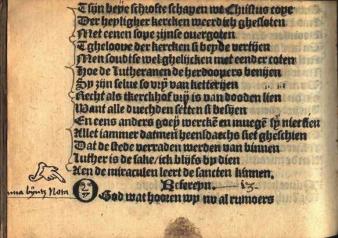 Tsijn beye schrofte schapen we Christus cope
Der heyligher kercken weerdich ghesloten
Met eenen sope zijnse overgoten
Tgheloove der kercken si beyde versijen
Men soudtse wel ghelijcken met eender coten
Hoe de Lutheranen de herdoopers benijen
Sy zijn selve so vry van ketterijen
Recht als tkerckhof vry is van dooden lien
Want alle duechden setten si besijen
En eens anders goey wercken en mueghen sy niet sien
Allet jammer datmen heensdaechs siet gheschien
Dat de stede verraden werden van binnen
Luther is de sake / ich blijfs by dien
Aen de miraculen leert de sancten kinnen.
Refereyn.
O God wat hooren wy nv al rumoers
Nota